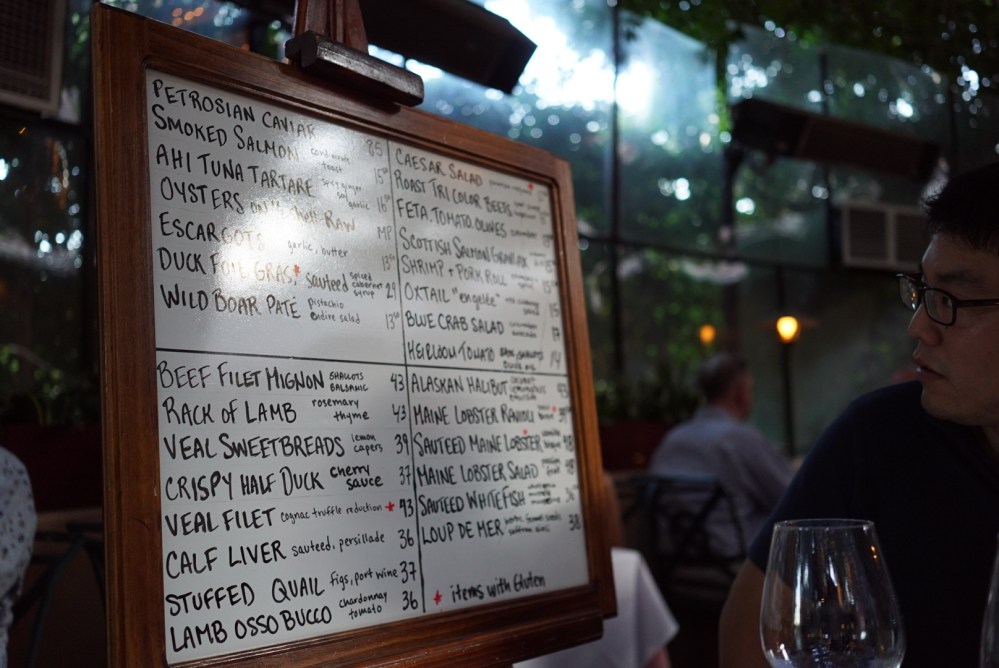 PETROSIAN CAVIAR 85
SMOKED SALMON toast 15⁵⁰
AHI TUNA TARTARE spicy ginger soy garlic 16⁵⁰
OYSTERS on 1/2 shell RAW MP
ESCARGOTS garlic, butter 13⁵⁰
DUCK FOIE GRAS * sauteed spiced cabernet syrup 29
WILD BOAR PATE pistachio endive salad 13⁵⁰
CAESAR SALAD *
ROAST TRI COLOR BEETS
FETA, TOMATO, OLIVES
SCOTTISH SALMON GRAVLAX
SHRIMP + PORK ROLL
OXTAIL 15
BLUE CRAB SALAD 17
HEIRLOOM TOMATO 14
BEEF FILET MIGNON SHALLOTS BALSAMIC 43
RACK OF LAMB rosemary thyme 43
VEAL SWEETBREADS lemon capers 39
CRISPY HALF DUCK cherry sauce 37
VEAL FILET cognac truffle reduction * 43
CALF LIVER sauteed, persillade 36
STUFFED QUAIL figs, port wine 37
LAMB OSSO BUCCO chardonnay tomato 36
ALASKAN HALIBUT 43
MAINE LOBSTER RAVIOLI *
SAUTEED MAINE LOBSTER * 48
MAINE LOBSTER SALAD 48
SAUTEED WHITEFISH 36
LOUP DE MER 38
* items with Gluten